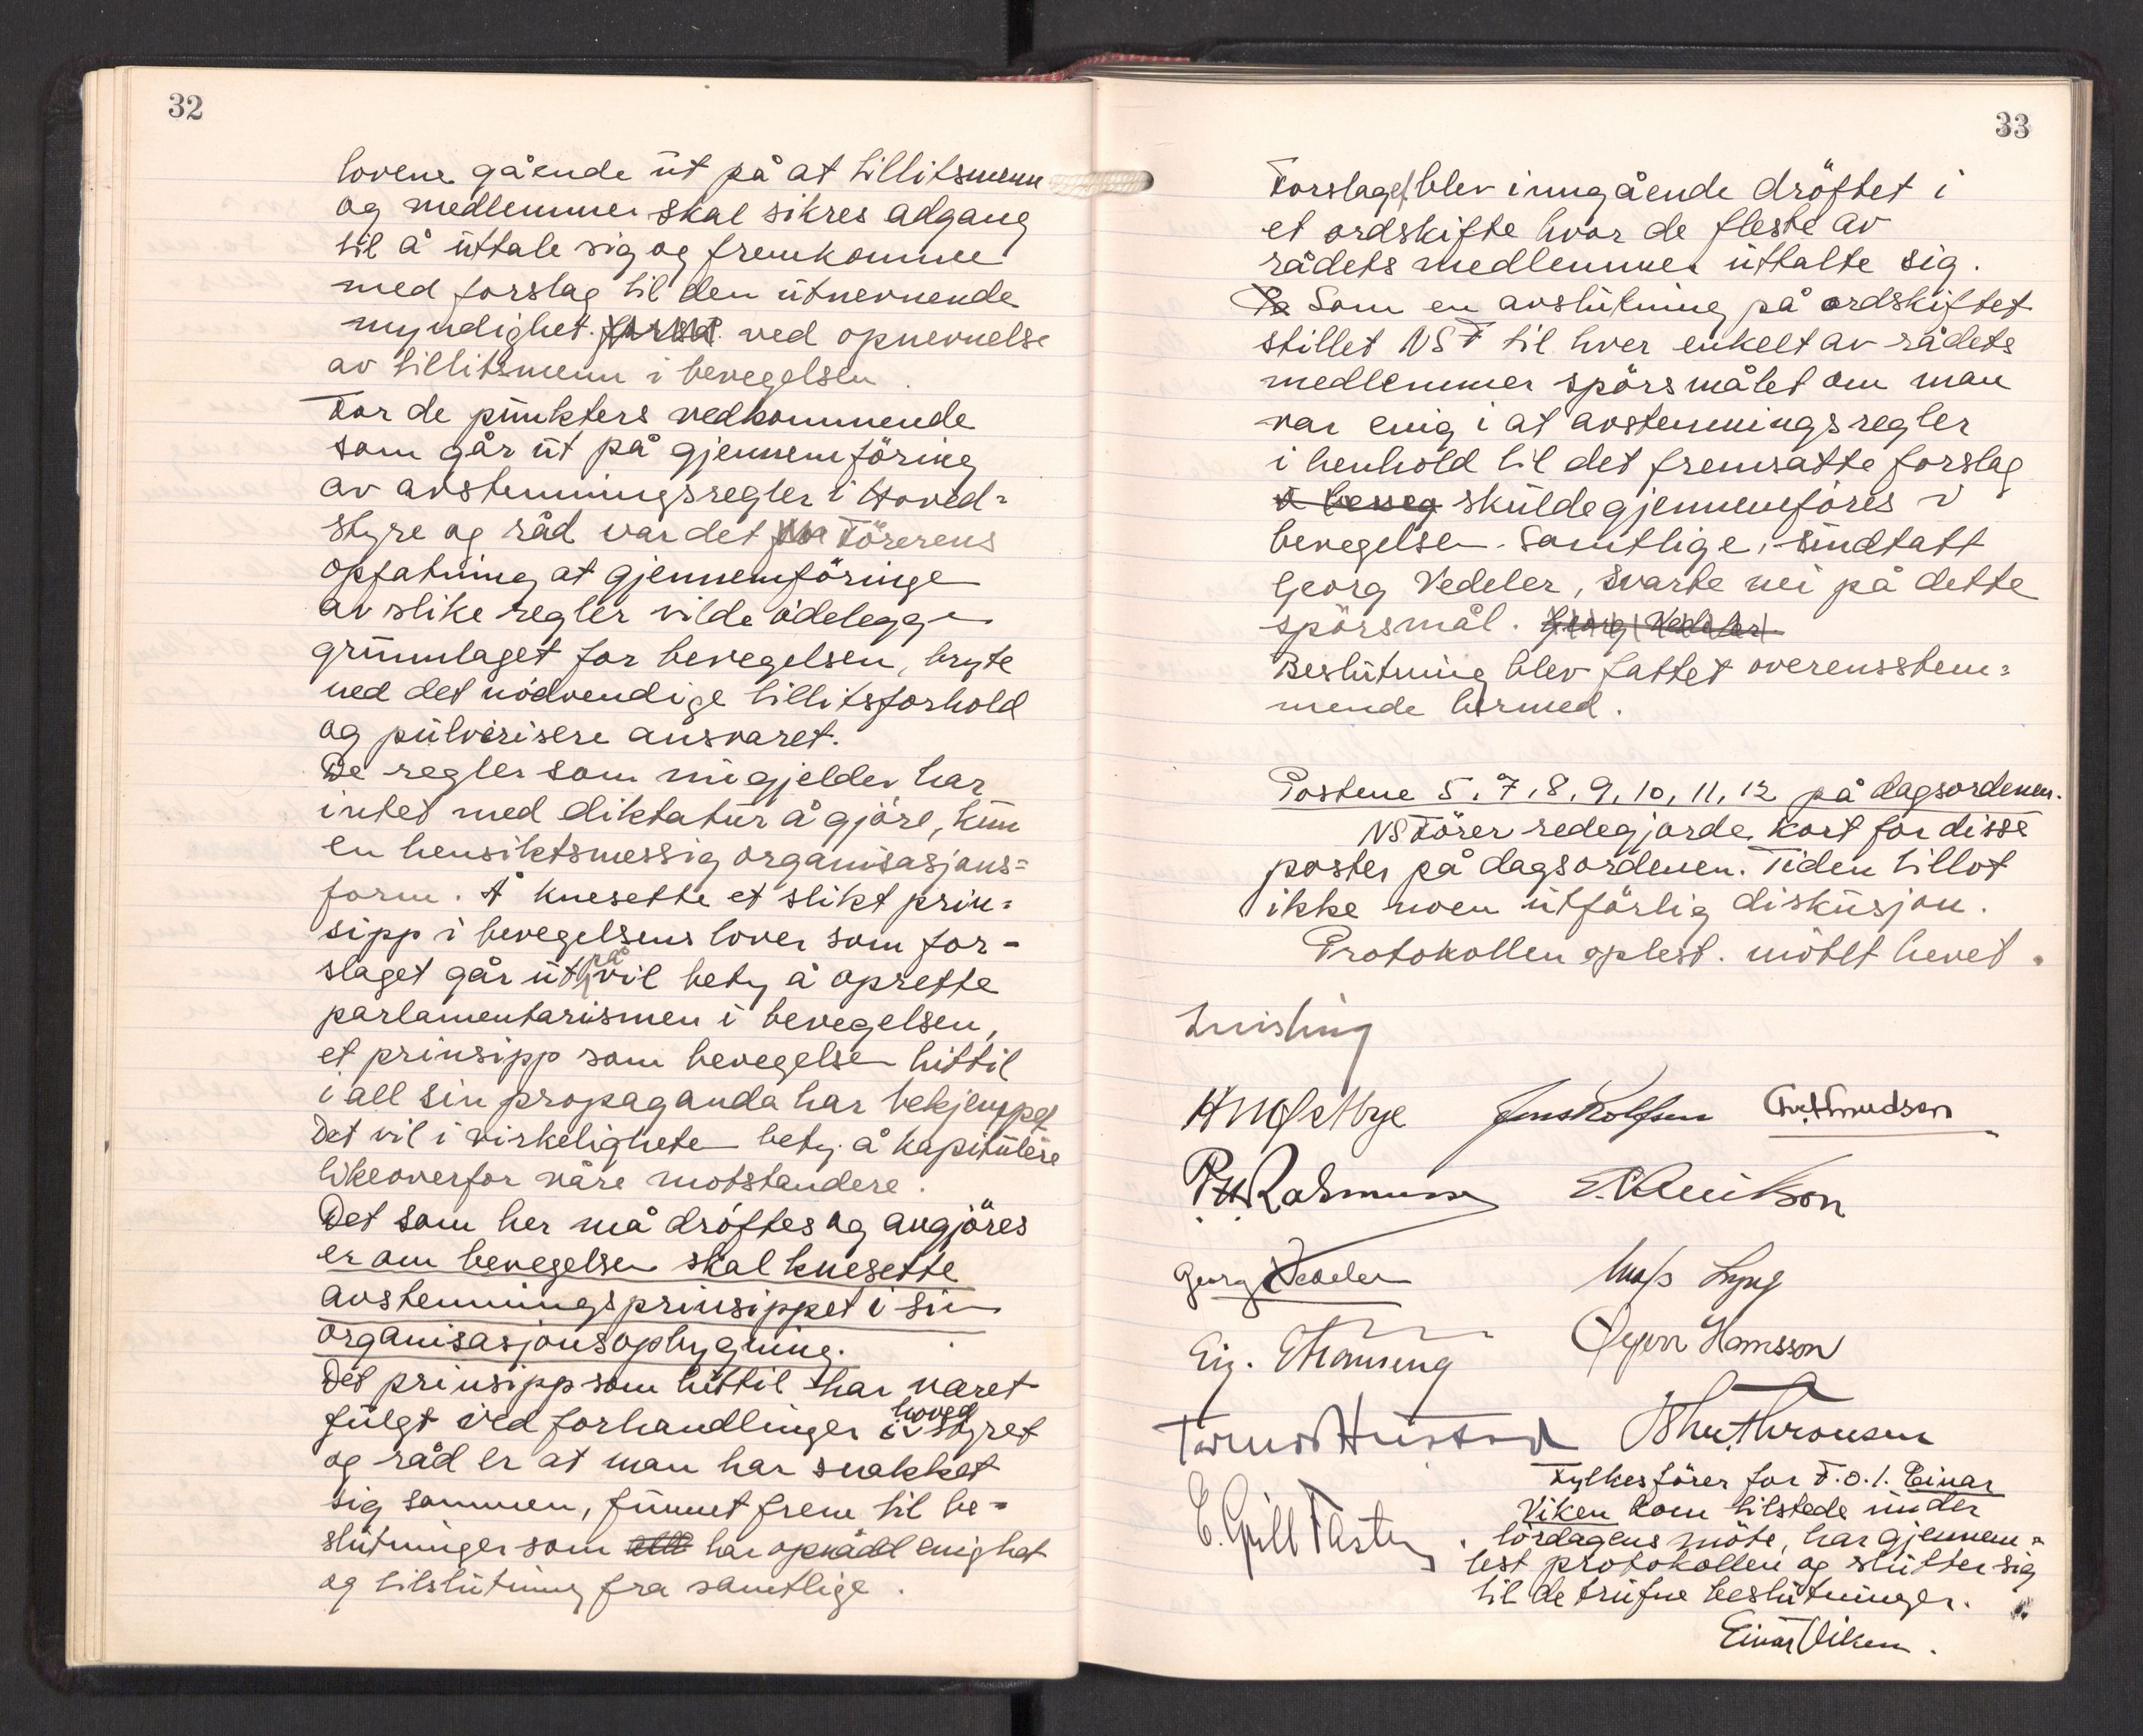 32
lovene gående ut på at tillitsmenn
og medlemmer skal sikres adgang
til å uttale sig og fremkomme
med forslag til den utnevnende
myndighet ved opnevnelse
av tillitsmenn i bevegelsen.
For de punkters vedkommende
som går ut på gjennemföring
av avstemningsregler i Hoved=
styre og råd var det Förerens
opfatning at gjennemföringe
av slike regler vilde ödelegge
grunnlaget for bevegelsen, bryte
ned det nödvendige tillitsforhold
og pulverisere ansvaret.
De regler som nu gjelder har
intet med diktatur å gjöre, kun
en hensiktsmessig organisasjons=
form. Å knesette et slikt prin=
sipp i bevegelsens lover som for-
slaget går ut på vil bety å oprette
parlamentarismen i bevegelsen,
et prinsipp som bevegelsen hittil
i all sin propaganda har bekjempet
Det vil i virkeligheten bety å kapitulere
likeoverfor våre motstandere.
Det som her må dröftes og avgjöres
er om bevegelsen skal knesette
avstemningsprinsippet i sin
organisasjonsopbygning.
Det prinsipp som hittil har været
fulgt ved forhandlinger i hovedstyret
og råd er at man har snakket
sig sammen, funnet frem til be=
slutninger som har opnådd enighet
og tilslutning fra samtlige.
33
Forslaget blev inngående dröftet i
et ordskifte hvor de fleste av
rådets medlemmer uttalte sig.
Som en avslutning på ordskiftet
stillet NSF til hver enkelt av rådets
medlemmer spörsmålet om man
var enig i at avstemningsregler
i henhold til det fremsatte forslag
skulde gjennemföres i
bevegelsen. Samtlige, undtatt
Georg Vedeler, svarte nei på dette
spörsmål. Georg Vedeler
Beslutning blev fattet overensstem=
mende hermed.
Postene 5, 7, 8, 9, 10, 11, 12 på dagsordenen.
NS Förer redegjorde kort for disse
poster på dagsordenen. Tiden tillot
ikke noen utförlig diskusjon.
Protokollen oplest. mötet hevet.
Quisling
Jens Rolfsen
Georg Vedeler
Ørjan Hansson
Tormod Hustad
Fylkesförer for F.o.l. Einar
Viken kom tilstede under
lördagens möte, har gjennem=
lest protokollen og slutter sig
til de trufne beslutninger.
Einar Viken.